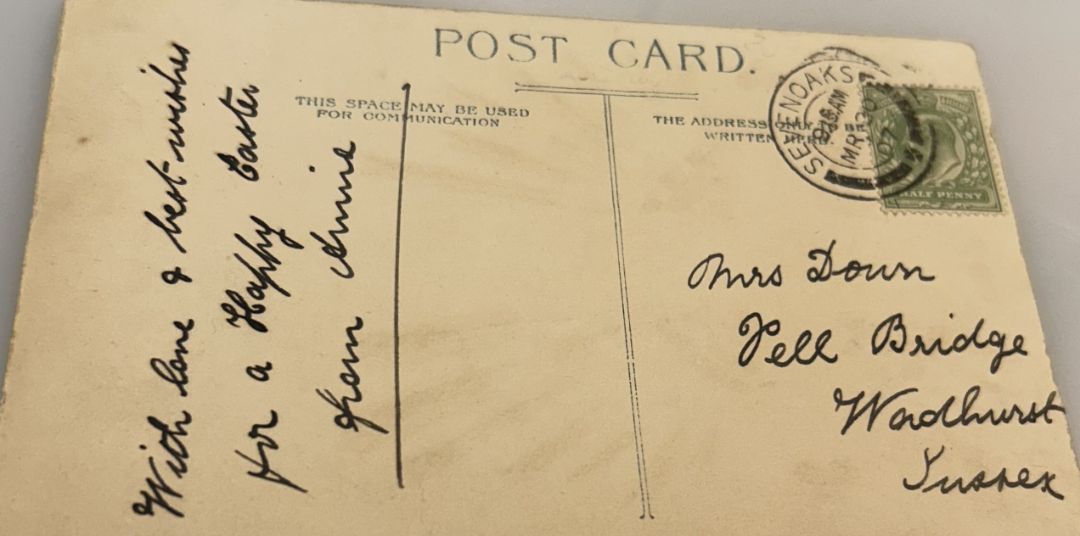 POST CARD.
THIS SPACE MAY BE USED
FOR COMMUNICATION
THE ADDRESS ONLY BE
WRITTEN HERE.
SEVENOAKS
9.15AM
MR 30
07
HALF PENNY
With love & best wishes
for a Happy Easter
from Annie
Mrs Down
Pell Bridge
Wadhurst
Sussex